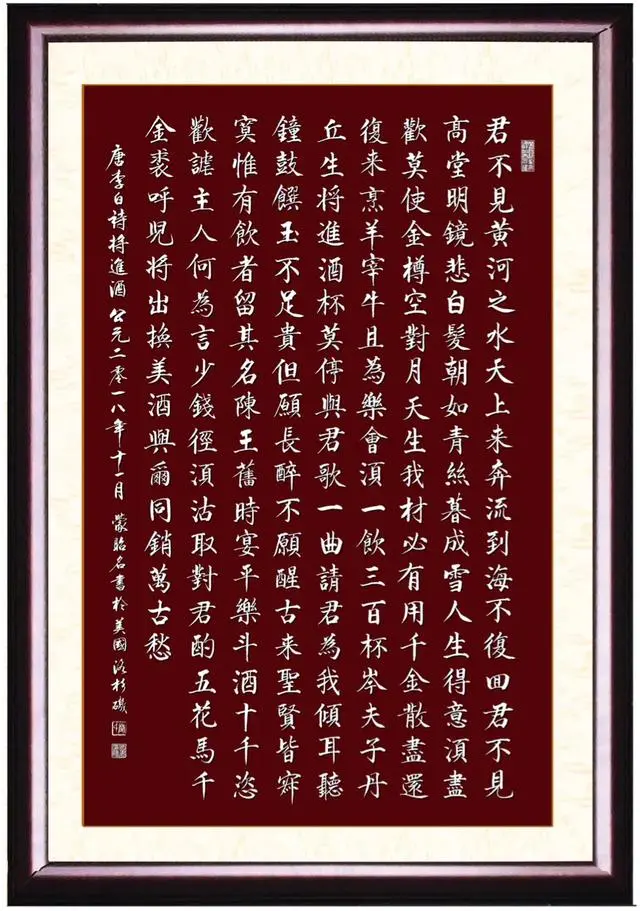 君不見黃河之水天上来奔流到海不復回君不見
高堂明鏡悲白髮朝如青絲暮成雪人生得意須盡
歡莫使金樽空對月天生我材必有用千金散盡還
復来烹羊宰牛且為樂會須一飲三百杯岑夫子丹
丘生將進酒杯莫停與君歌一曲請君為我傾耳聽
鐘鼓饌玉不足貴但願長醉不願醒古来聖賢皆寂
寞惟有飲者留其名陳王舊時宴平樂斗酒十千恣
歡謔主人何為言少錢徑須沽取對君酌五花馬千
金裘呼兒將出換美酒與爾同銷萬古愁
唐李白詩將進酒 公元二零一八年十一月 蒙名書於美國洛杉磯